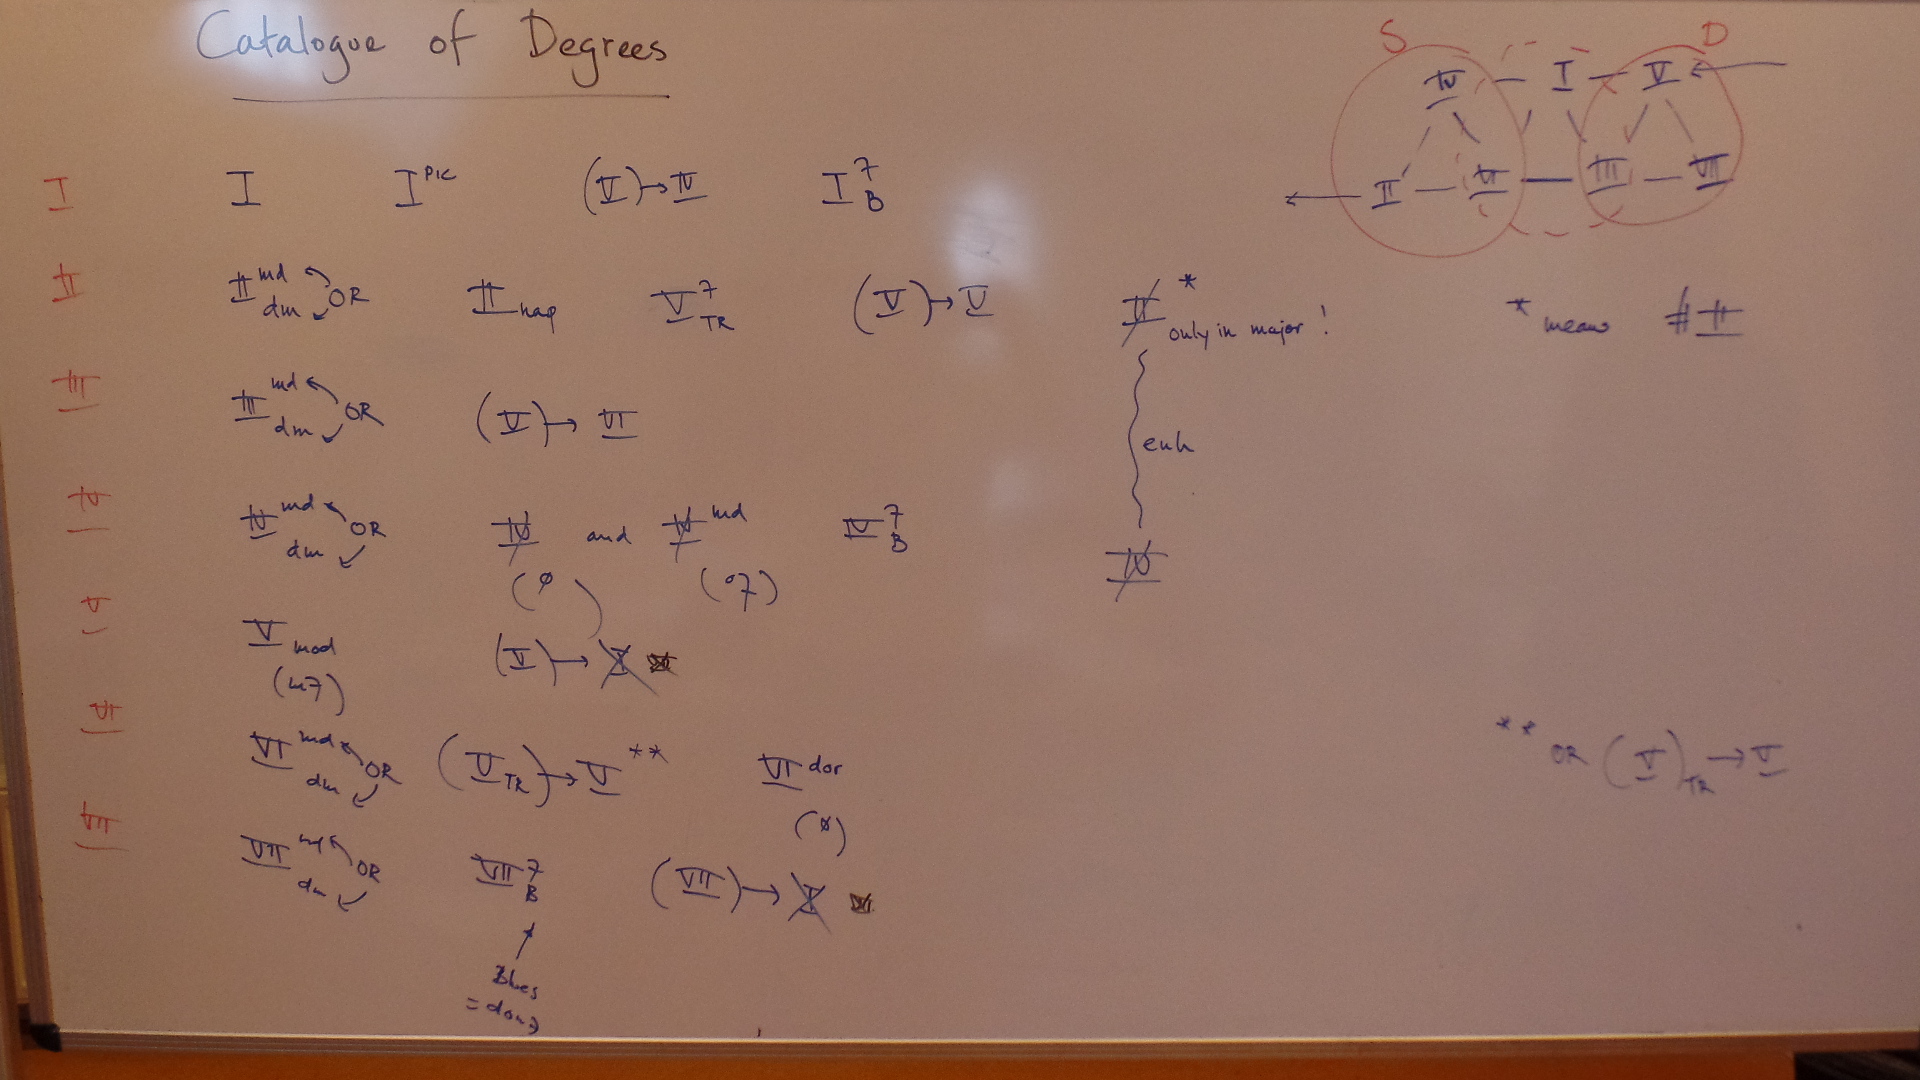 Catalogue of Degrees
S D
IV I V
II VI III VII
I I I PIC (V) → IV I 7 B
II II md dm OR II nap V 7 TR (V) → V II * only in major ! * means # II
III III md dm OR (V) → VI enh
IV IV md dm OR IV and IV md IV 7 B IV
(ø) (o7)
V V mod (V) → I
(m7)
VI VI md dm OR (V TR) → V ** VI dor ** OR (V) TR → V
(ø)
VII VII md dm OR VII 7 B (VII) → I
Blues
= dom 7